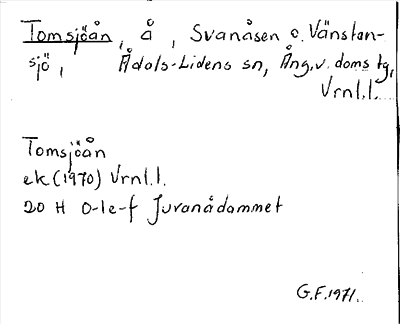 Tomsjöån, å, Svanåsen o. Vänstan-
sjö, Ådals-Lidens sn, Ång. v. doms tg,
Vrnl.l.
Tomsjöån
ek (1970) Vrnl.l.
20 H 0-1e-f Juvanådammet
G.F. 1971.